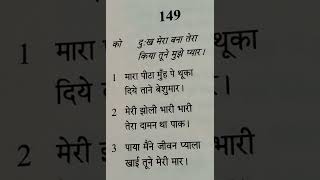 149
को दुःख मेरा बना तेरा
किया तूने मुझे प्यार।
1 मारा पीटा मुँह पे थूका
दिये ताने बेशुमार।
2 मेरी झोली भारी भारी
तेरा दामन था पाक।
3 पाया मैंने जीवन प्याला
खाई तूने मेरी मार।